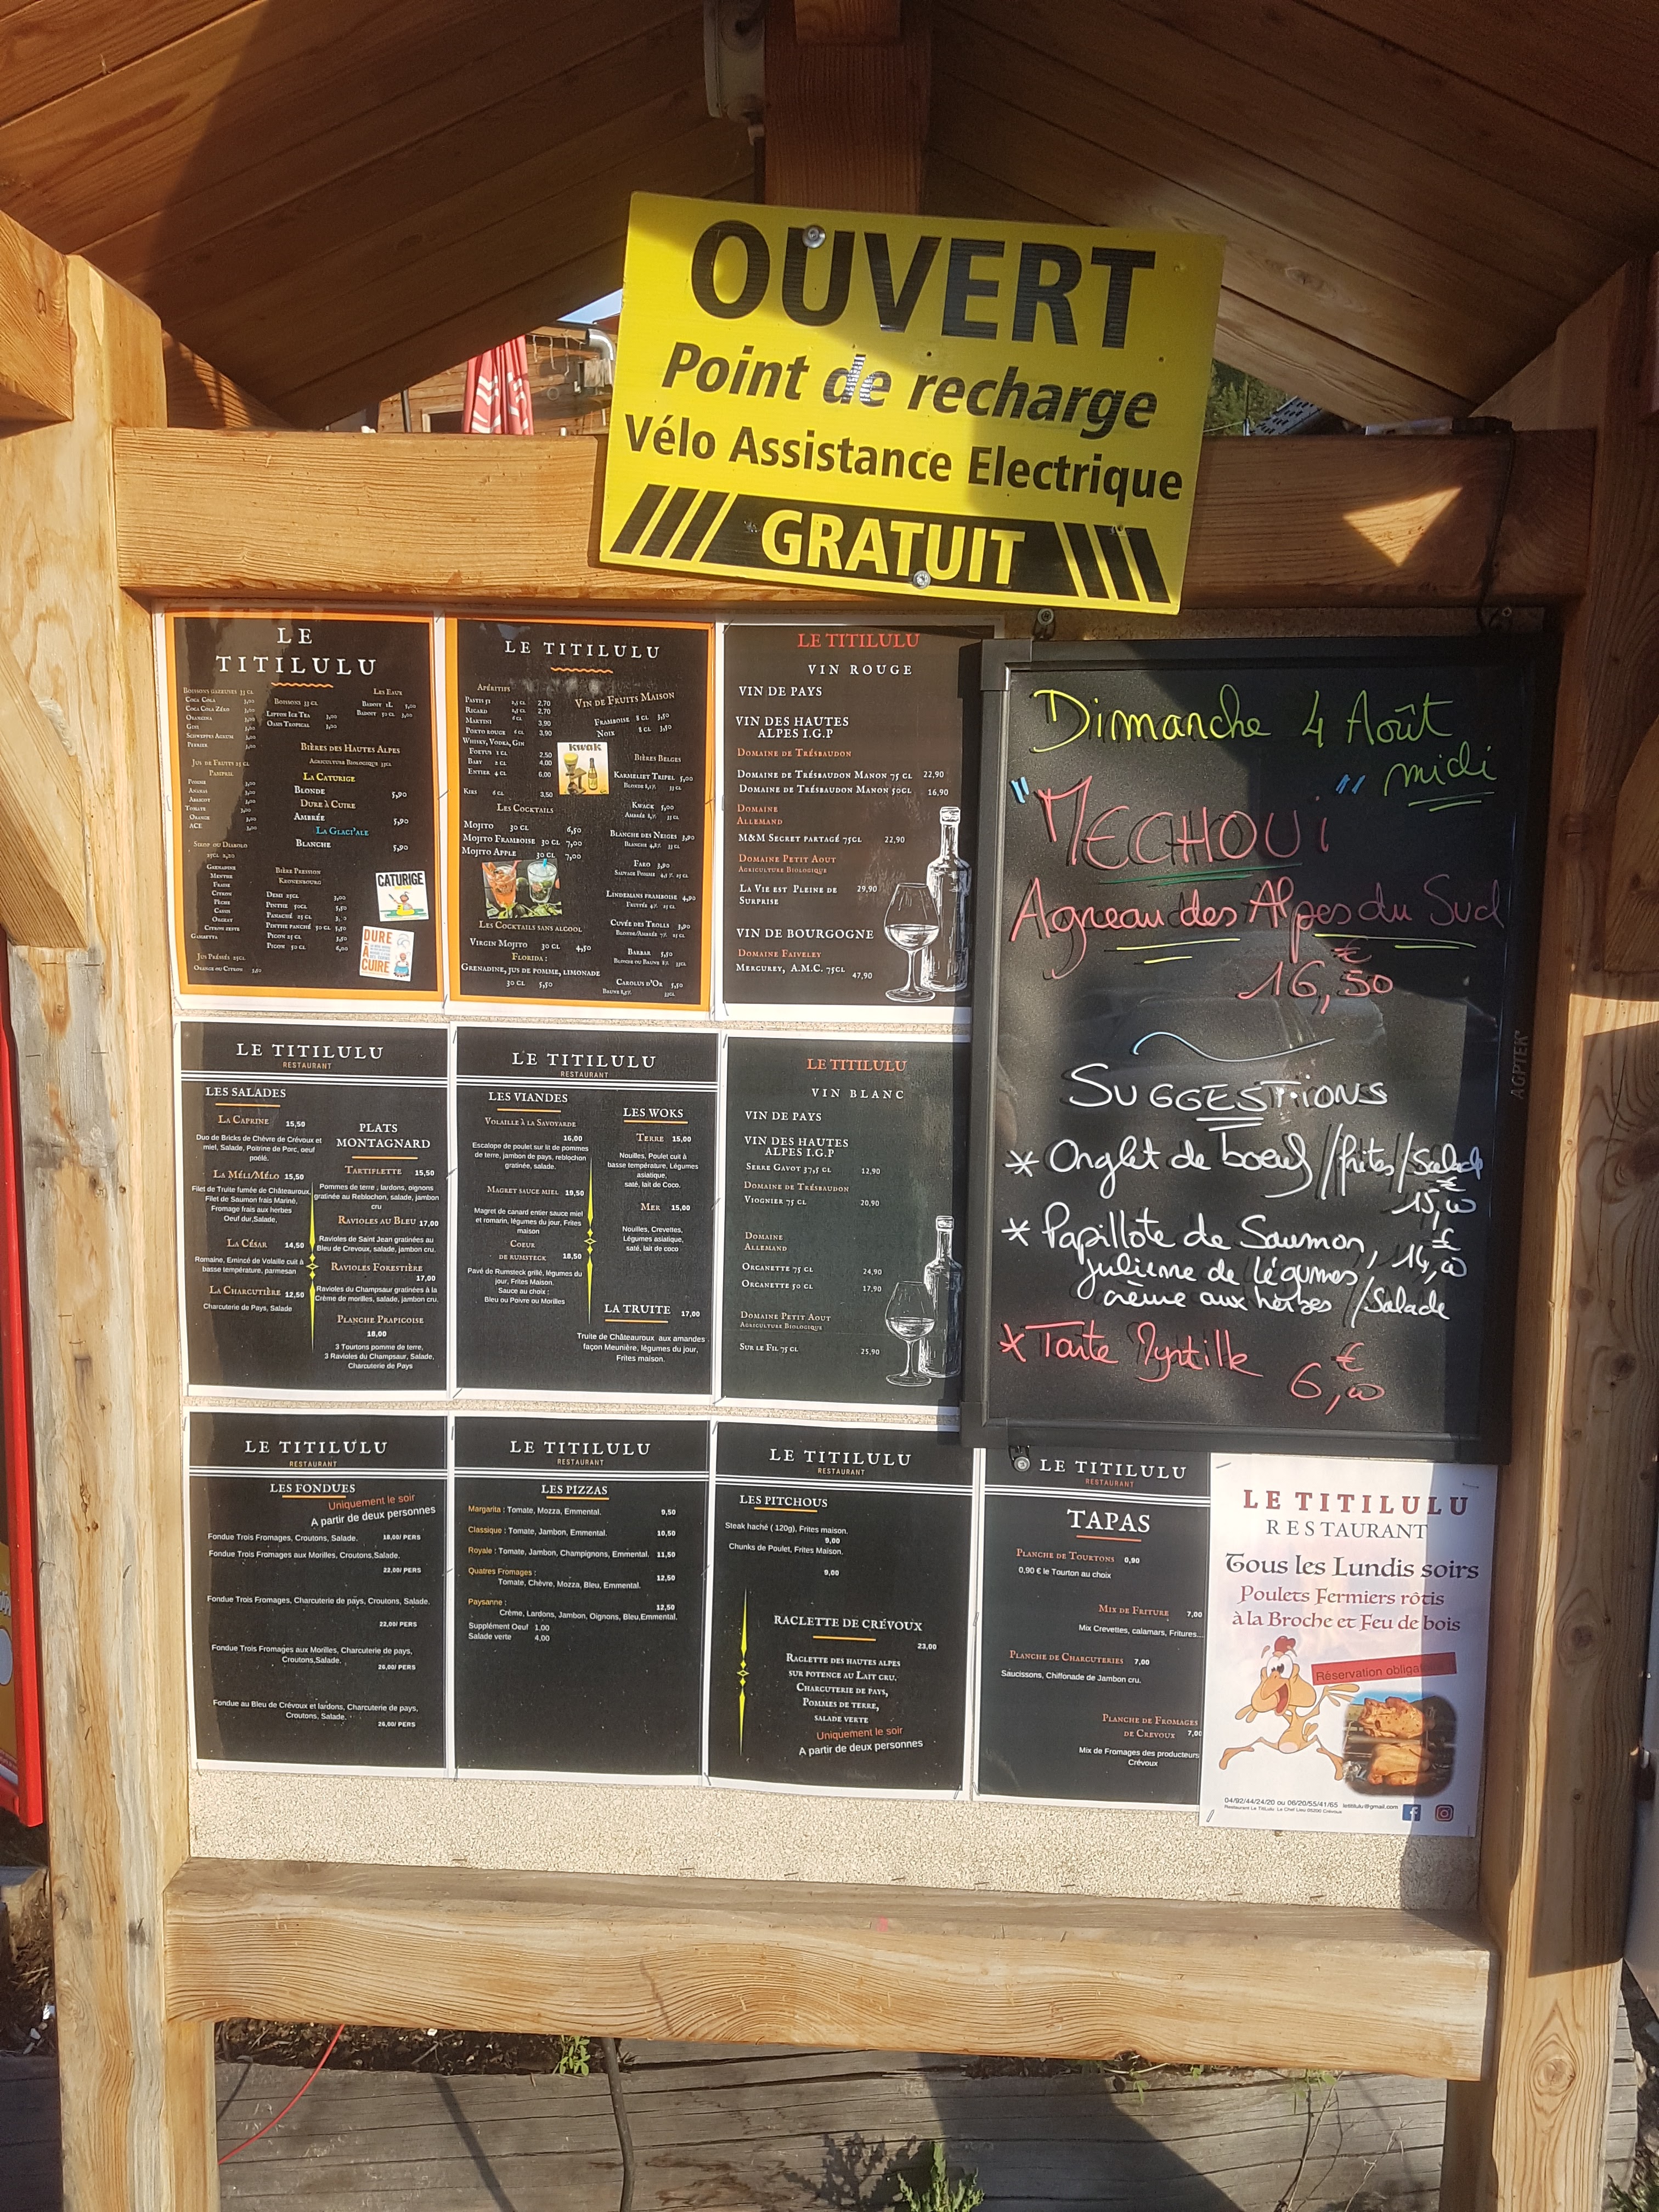 OUVERT
Point de recharge
Vélo Assistance Electrique
GRATUIT
LE
TITILULU
Boissons gazeuses 33 cl
Coca Cola 3,00
Coca Cola Zéro 3,00
Orangina 3,00
Gini 3,00
Schweppes Agrum 3,00
Perrier 3,00
Jus de Fruits 25 cl
Pampril
Pomme 3,00
Ananas 3,00
Abricot 3,00
Tomate 3,00
Orange 3,00
ACE 3,00
Sirop ou Diabolo
Grenadine
Menthe
Fraise
Citron
Pêche
Cassis
Orgeat
Jus Pressés 25cl
Orange ou Citron
Boissons 33 cl
Lipton Ice Tea 3,00
Oasis Tropical 3,00
Les Eaux
Badoit 1L
Badoit 50 cl 3,00
Bières des Hautes Alpes
Agriculture Biologique 33cl
La Caturige
Blonde 5,90
Dure à Cuire
Ambrée 5,90
La Glaci'ale
Blanche 5,90
Bière Pression
Kronenbourg
Demi 25cl 3,00
Pinthe 50cl 5,50
Panaché 25 cl
Pinthe panché 50 cl 5,50
Picon 25 cl 3,50
Picon 50 cl 6,00
CATURIGE
DURE
À
CUIRE
LE TITILULU
Apéritifs
Pastis 51 2,5 cl 2,70
Ricard 2,5 cl 2,70
Martini 6 cl 3,90
Porto rouge 6 cl 3,90
Whisky, Vodka, Gin
Foetus 1 cl 2,50
Baby 2 cl 4,00
Entier 4 cl 6,00
Kirs 6 cl 3,50
Les Cocktails
Mojito 30 cl 6,50
Mojito Framboise 30 cl 7,00
Mojito Apple 30 cl 7,00
Les Cocktails sans algool
Virgin Mojito 30 cl 4,50
Florida :
Grenadine, jus de pomme, limonade
30 cl 5,50
Vin de Fruits Maison
Framboise 8 cl 3,50
Noix 8 cl 3,50
kwak
Bières Belges
Karmeliet Tripel 5,00
Blonde 8,4% 33 cl
Kwack 5,00
Ambrée 33 cl
Blanche des Neiges 3,90
Faro 3,90
Lindemans framboise 4,90
Cuvée des Trolls 3,90
Barbar 5,50
Carolus d'Or 5,50
LE TITILULU
VIN ROUGE
VIN DE PAYS
VIN DES HAUTES
ALPES I.G.P
Domaine de Trésbaudon
Domaine de Trésbaudon Manon 75 cl 22,90
Domaine de Trésbaudon Manon 50cl 16,90
Domaine
Allemand
M&M Secret partagé 75cl 22,90
Domaine Petit Aout
Agriculture Biologique
La Vie est Pleine de 29,90
Surprise
VIN DE BOURGOGNE
Domaine Faiveley
Mercurey, A.M.C. 75cl 47,90
Dimanche 4 Août
midi
"MECHOUi"
Agneau des Alpes du Sud
€
16,50
SUGGESTiONS
* Onglet de boeuf /frites/Salade
€
15,00
* Papillote de Saumon, 14,00 €
Julienne de légumes
crème aux herbes /Salade
* Tarte Myrtille €
6,00
AGPTEK
LE TITILULU
RESTAURANT
LES SALADES
La Caprine 15,50
Duo de Bricks de Chèvre de Crévoux et
miel, Salade, Poitrine de Porc, oeuf
poêlé.
La Méli/Mélo 15,50
Filet de Truite fumée de Châteauroux,
Filet de Saumon frais Mariné,
Fromage frais aux herbes
Oeuf dur,Salade.
La César 14,50
Romaine, Emincé de Volaille cuit à
basse température, parmesan
La Charcutière 12,50
Charcuterie de Pays, Salade
PLATS
MONTAGNARD
Tartiflette 15,50
Pommes de terre , lardons, oignons
gratinée au Reblochon, salade, jambon
cru
Ravioles au Bleu 17,00
Ravioles de Saint Jean gratinées au
Bleu de Crevoux, salade, jambon cru.
Ravioles Forestière
17,00
Ravioles du Champsaur gratinées à la
Crème de morilles, salade, jambon cru.
Planche Prapicoise
18,00
3 Tourtons pomme de terre,
3 Ravioles du Champsaur, Salade,
Charcuterie de Pays
LE TITILULU
RESTAURANT
LES VIANDES
Volaille à la Savoyarde
16,00
Escalope de poulet sur lit de pommes
de terre, jambon de pays, reblochon
gratinée, salade.
Magret sauce miel 19,50
Magret de canard entier sauce miel
et romarin, légumes du jour, Frites
maison
Coeur
de rumsteck 18,50
Pavé de Rumsteck grillé, légumes du
jour, Frites Maison.
Sauce au choix :
Bleu ou Poivre ou Morilles
LES WOKS
Terre 15,00
Nouilles, Poulet cuit à
basse température, Légumes
asiatique,
saté, lait de Coco.
Mer 15,00
Nouilles, Crevettes,
Légumes asiatique,
saté, lait de coco
LA TRUITE 17,00
Truite de Châteauroux aux amandes
façon Meunière, légumes du jour,
Frites maison.
LE TITILULU
VIN BLANC
VIN DE PAYS
VIN DES HAUTES
ALPES I.G.P
Serre Gavot 37,5 cl 12,90
Domaine de Trésbaudon
Viognier 75 cl 20,90
Domaine
Allemand
Organette 75 cl 24,90
Organette 50 cl 17,90
Domaine Petit Aout
Agriculture Biologique
Sur le Fil 75 cl 25,90
LE TITILULU
RESTAURANT
LES FONDUES
Uniquement le soir
A partir de deux personnes
Fondue Trois Fromages, Croutons, Salade. 18,00/ PERS
Fondue Trois Fromages aux Morilles, Croutons,Salade.
22,00/ PERS
Fondue Trois Fromages, Charcuterie de pays, Croutons, Salade.
22,00/ PERS
Fondue Trois Fromages aux Morilles, Charcuterie de pays,
Croutons,Salade.
26,00/ PERS
Fondue au Bleu de Crévoux et lardons, Charcuterie de pays,
Croutons, Salade.
26,00/ PERS
LE TITILULU
RESTAURANT
LES PIZZAS
Margarita : Tomate, Mozza, Emmental. 9,50
Classique : Tomate, Jambon, Emmental. 10,50
Royale : Tomate, Jambon, Champignons, Emmental. 11,50
Quatres Fromages : 12,50
Tomate, Chèvre, Mozza, Bleu, Emmental.
Paysanne : 12,50
Crème, Lardons, Jambon, Oignons, Bleu,Emmental.
Supplément Oeuf 1,00
Salade verte 4,00
LE TITILULU
RESTAURANT
LES PITCHOUS
Steak haché ( 120g), Frites maison.
9,00
Chunks de Poulet, Frites Maison.
9,00
RACLETTE DE CRÉVOUX
23,00
Raclette des Hautes Alpes
sur potence au Lait cru.
Charcuterie de pays,
Pommes de terre,
salade verte
Uniquement le soir
A partir de deux personnes
LE TITILULU
RESTAURANT
TAPAS
Planche de Tourtons 0,90
0,90 € le Tourton au choix
Mix de Friture 7,00
Mix Crevettes, calamars, Fritures...
Planche de Charcuteries 7,00
Saucissons, Chiffonade de Jambon cru.
Planche de Fromages
de Crevoux 7,00
Mix de Fromages des producteurs
Crévoux
LE TITILULU
RESTAURANT
Tous les Lundis soirs
Poulets Fermiers rôtis
à la Broche et Feu de bois
Réservation obligatoire
04/92/44/24/20 ou 06/20/55/41/65 letitilulu@gmail.com
Restaurant Le TitiLulu Le Chef Lieu 05200 Crévoux